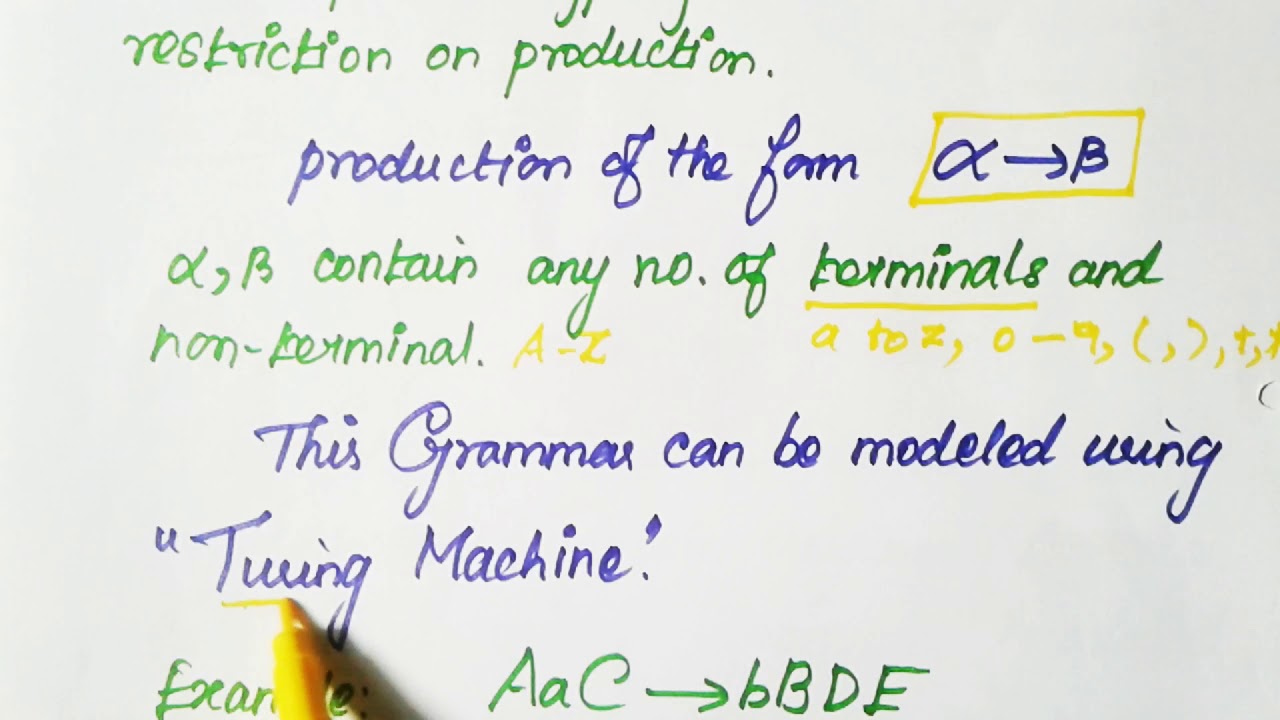 restriction on production.
production of the form α→β
α,β contain any no. of terminals and
non-terminal. A-Z a to z, 0-9, (,),+,
This Grammar can be modeled using
"Turing Machine."
AaC→bBDE